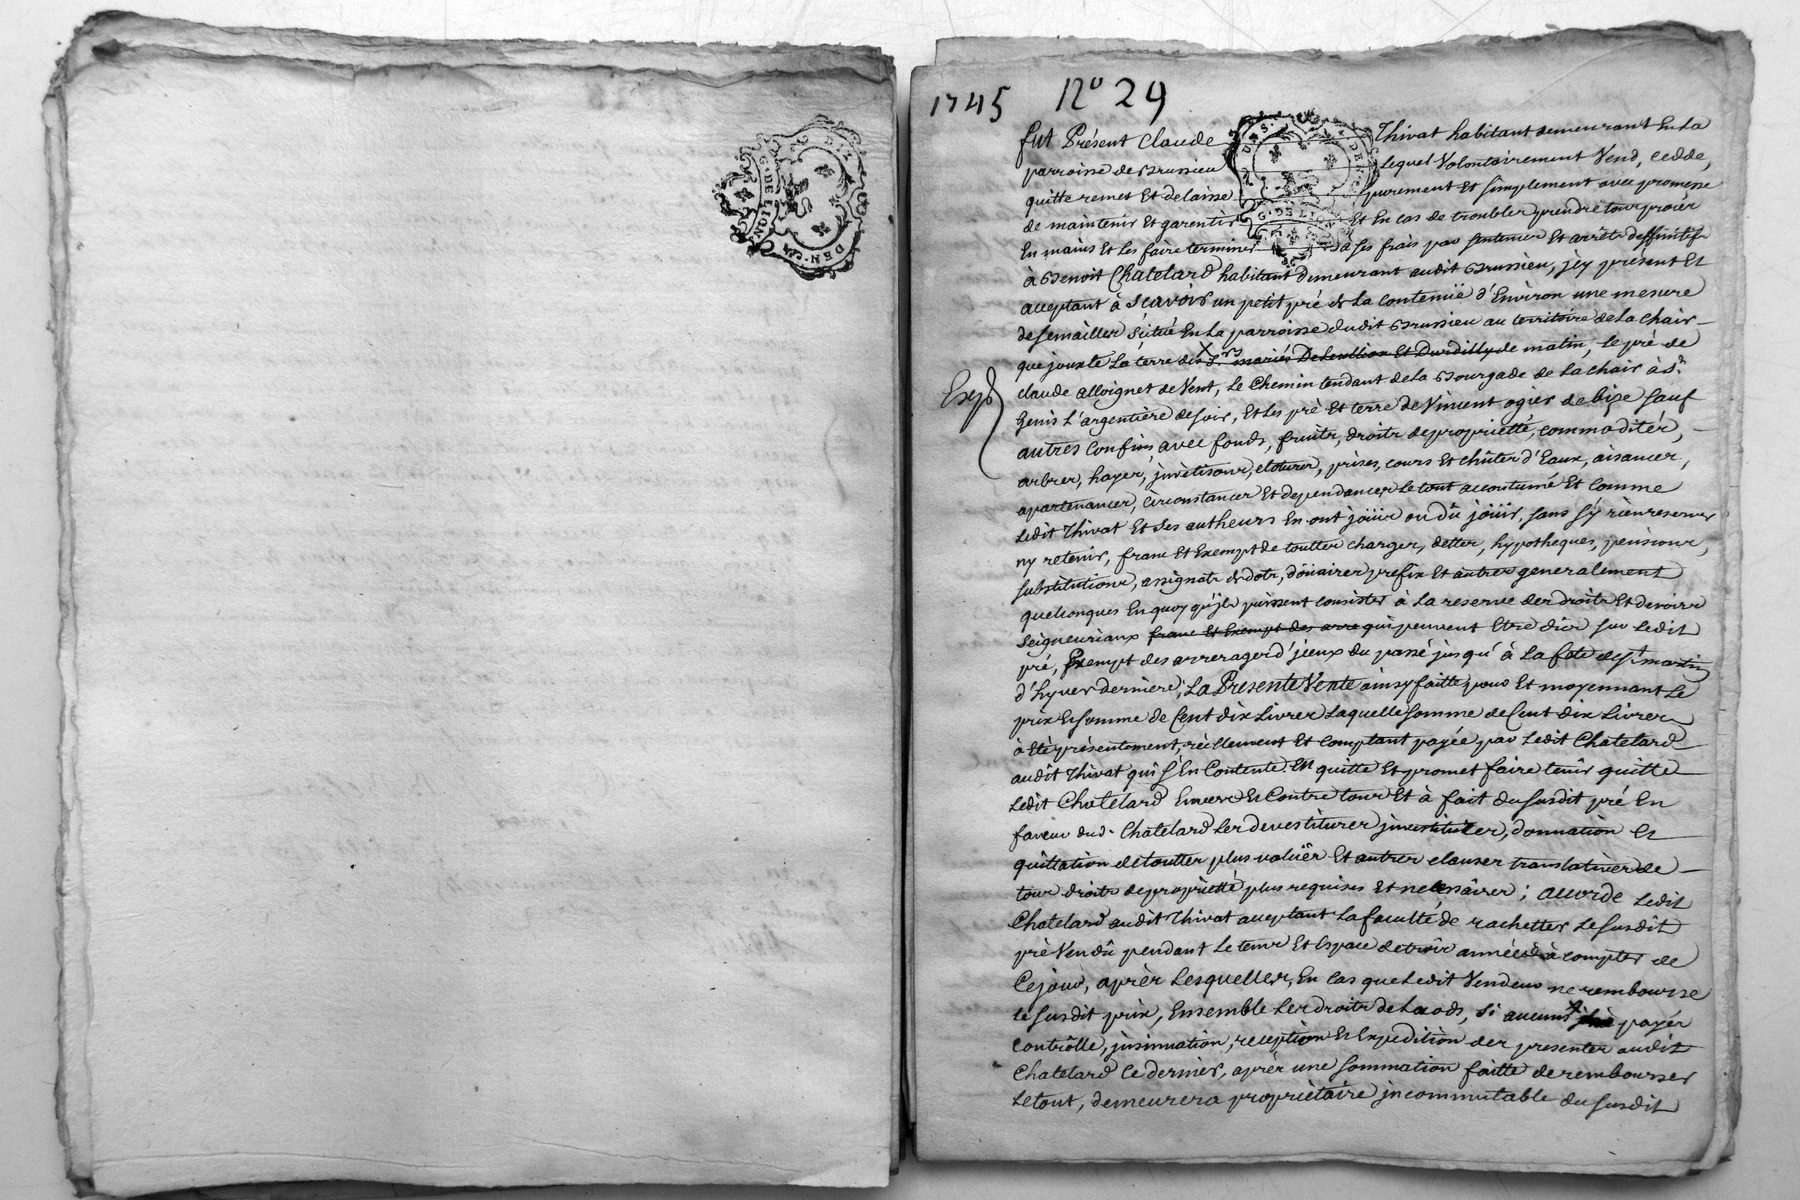 1745 N.º 29
fut Présent Claude Thivat habitant demeurant En La
parroisse de Brussieu Lequel Volontairement Vend, cedde,
quitte remet Et delaisse purement Et simplement avec promesse
de maintenir Et garentir Et En cas de troubles prendre tous procès
En mains Et les faire terminer à ses frais par sentence Et arrêt deffinitif
à Benoit Chatelard habitant demeurant audit Brussieu, jcy present Et
acceptant à Scavoir un petit pré de La contenüe d'Environ une mesure
de semailles Scitué En La parroisse dudit Brussieu au territoire de La Chair
que jouxte La terre des Srs mariés Et Durdilly de matin, le pré de
claude alloignet de Vent, Le Chemin tendant de La Bourgade de La chair à St
Genis L'argentière de soir, Et Les pré Et terre de Vincent ogier de bize sauf
Exp.d
autres confins avec fonds, fruits, droits de propriétté, commodités,
arbres, hayes, juvétisons, clotures, prises, cours Et chûtes d'Eaux, aisances,
apartenances, circonstances Et dependances Le tout accoutumé Et Comme
Ledit Thivat Et Ses autheurs En ont joüir ou dû joüir, sans s'y rien reserver
ny retenir, franc Et Exempt de touttes charges, dettes, hypotheques, pensions,
substitutions, assignats de dots, doüaires prefix Et autres generalement
quelconques En quoy qu'jls puissent consister à La reserve des droits Et devoirs
Seigneuriaux franc Et Exempt des arre qui peuvent Etre dûs sur Ledit
pré, Exempt des arrerages d'jceux du passé jusqu'à La fete de St martin
d'hyver dernière; La Presente Vente ainsy faitte pour Et moyennant Le
prix Et somme de Cent dix Livres Laquelle somme de Cent dix Livres
à Eté présentement, réellement Et comptant payée par Ledit Chatelard
audit Thivat qui S'En Contente En quitte Et promet faire tenir quitte
Ledit Chatelard Envers Et Contre tous Et à fait du susdit pré En
faveur dud. Chatelard Les devestitures jnvestitures, donnation Et
quittation de touttes plus valües Et autres clauses translatives de
tous droits de propriétté plus requises Et necessaires; accorde Ledit
Chatelard audit Thivat acceptant La faculté de rachetter Le susdit
pré Vendû pendant Le tems Et Espace de trois années à compter de
Ce jour, après Lesquelles, En cas que Ledit Vendeur ne rembourse
le susdit prix, Ensemble Les droits de Laods, si aucuns payés
contrôlle, jnsinuation, reception Et Expedition des presentes audit
Chatelard Ce dernier, après une sommation faitte de rembourser
Le tout, demeurera propriétaire jncommutable du susdit